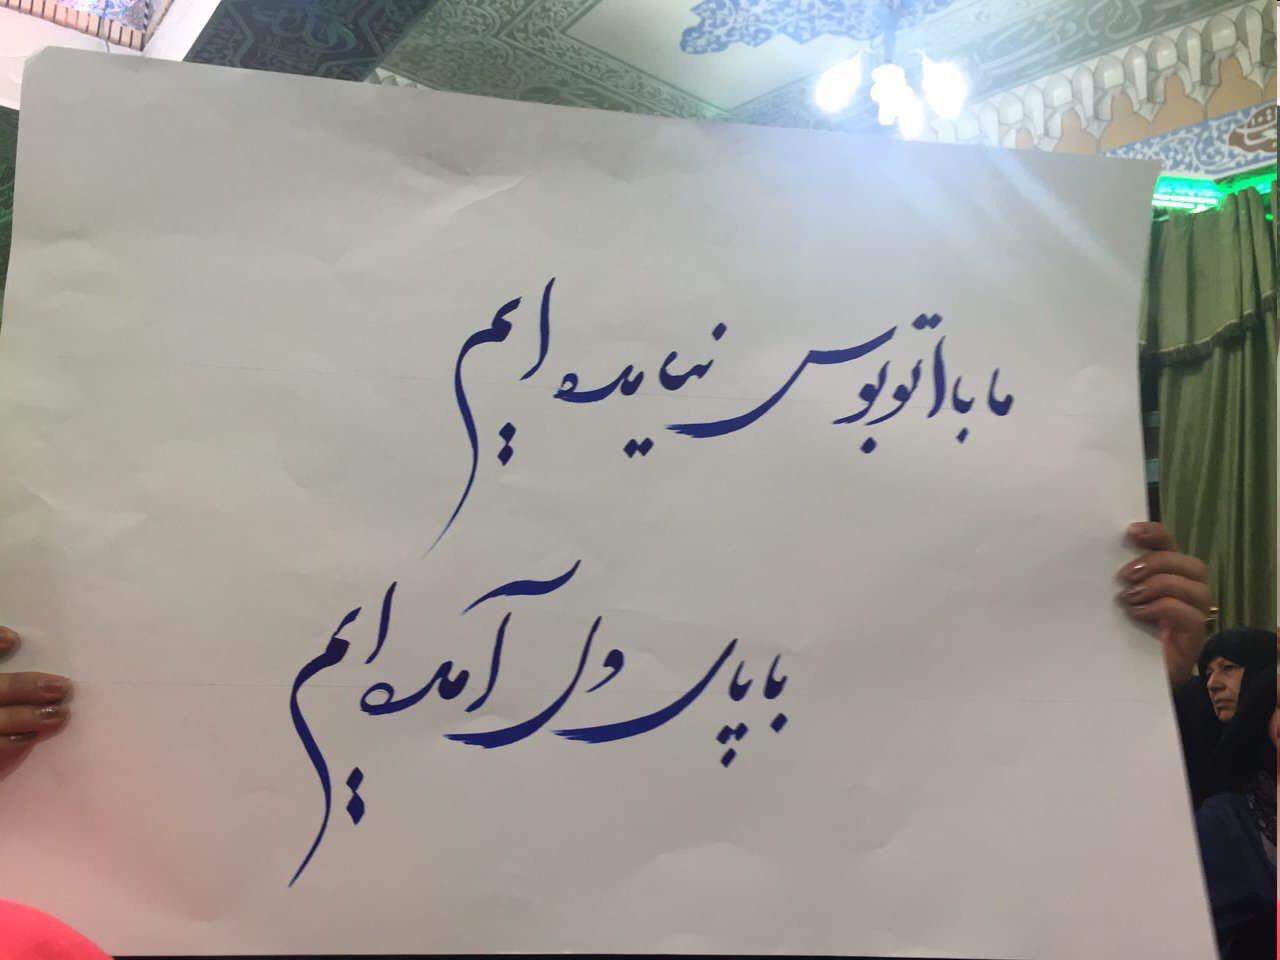 ما با اتوبوس نیامده ایم
با پای دل آمده ایم